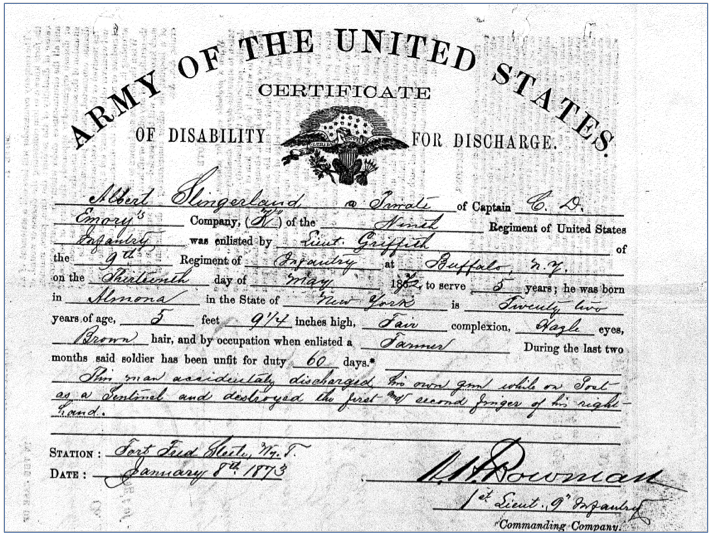 ARMY OF THE UNITED STATES.
CERTIFICATE
OF DISABILITY FOR DISCHARGE.
Albert Slingerland a Private of Captain C. D.
Emory's Company, (H) of the Ninth Regiment of United States
Infantry was enlisted by Lieut. Griffith of
the 9th Regiment of Infantry at Buffalo, N.Y.
on the Thirteenth day of May 1872, to serve 5 years; he was born
in Almona in the State of New York is Twenty two
years of age, 5 feet 9 1/4 inches high, Fair complexion, Hazle eyes,
Brown hair, and by occupation when enlisted a Farmer During the last two
months said soldier has been unfit for duty 60 days.*
This man accidentaly discharged his own gun while on Post
as a Sentinel and destroyed the first and second finger of his right
hand.
STATION: Fort Fred Steele, Wy. T.
DATE: January 8th 1873
Bowman
1st Lieut. 9" Infantry
Commanding Company.